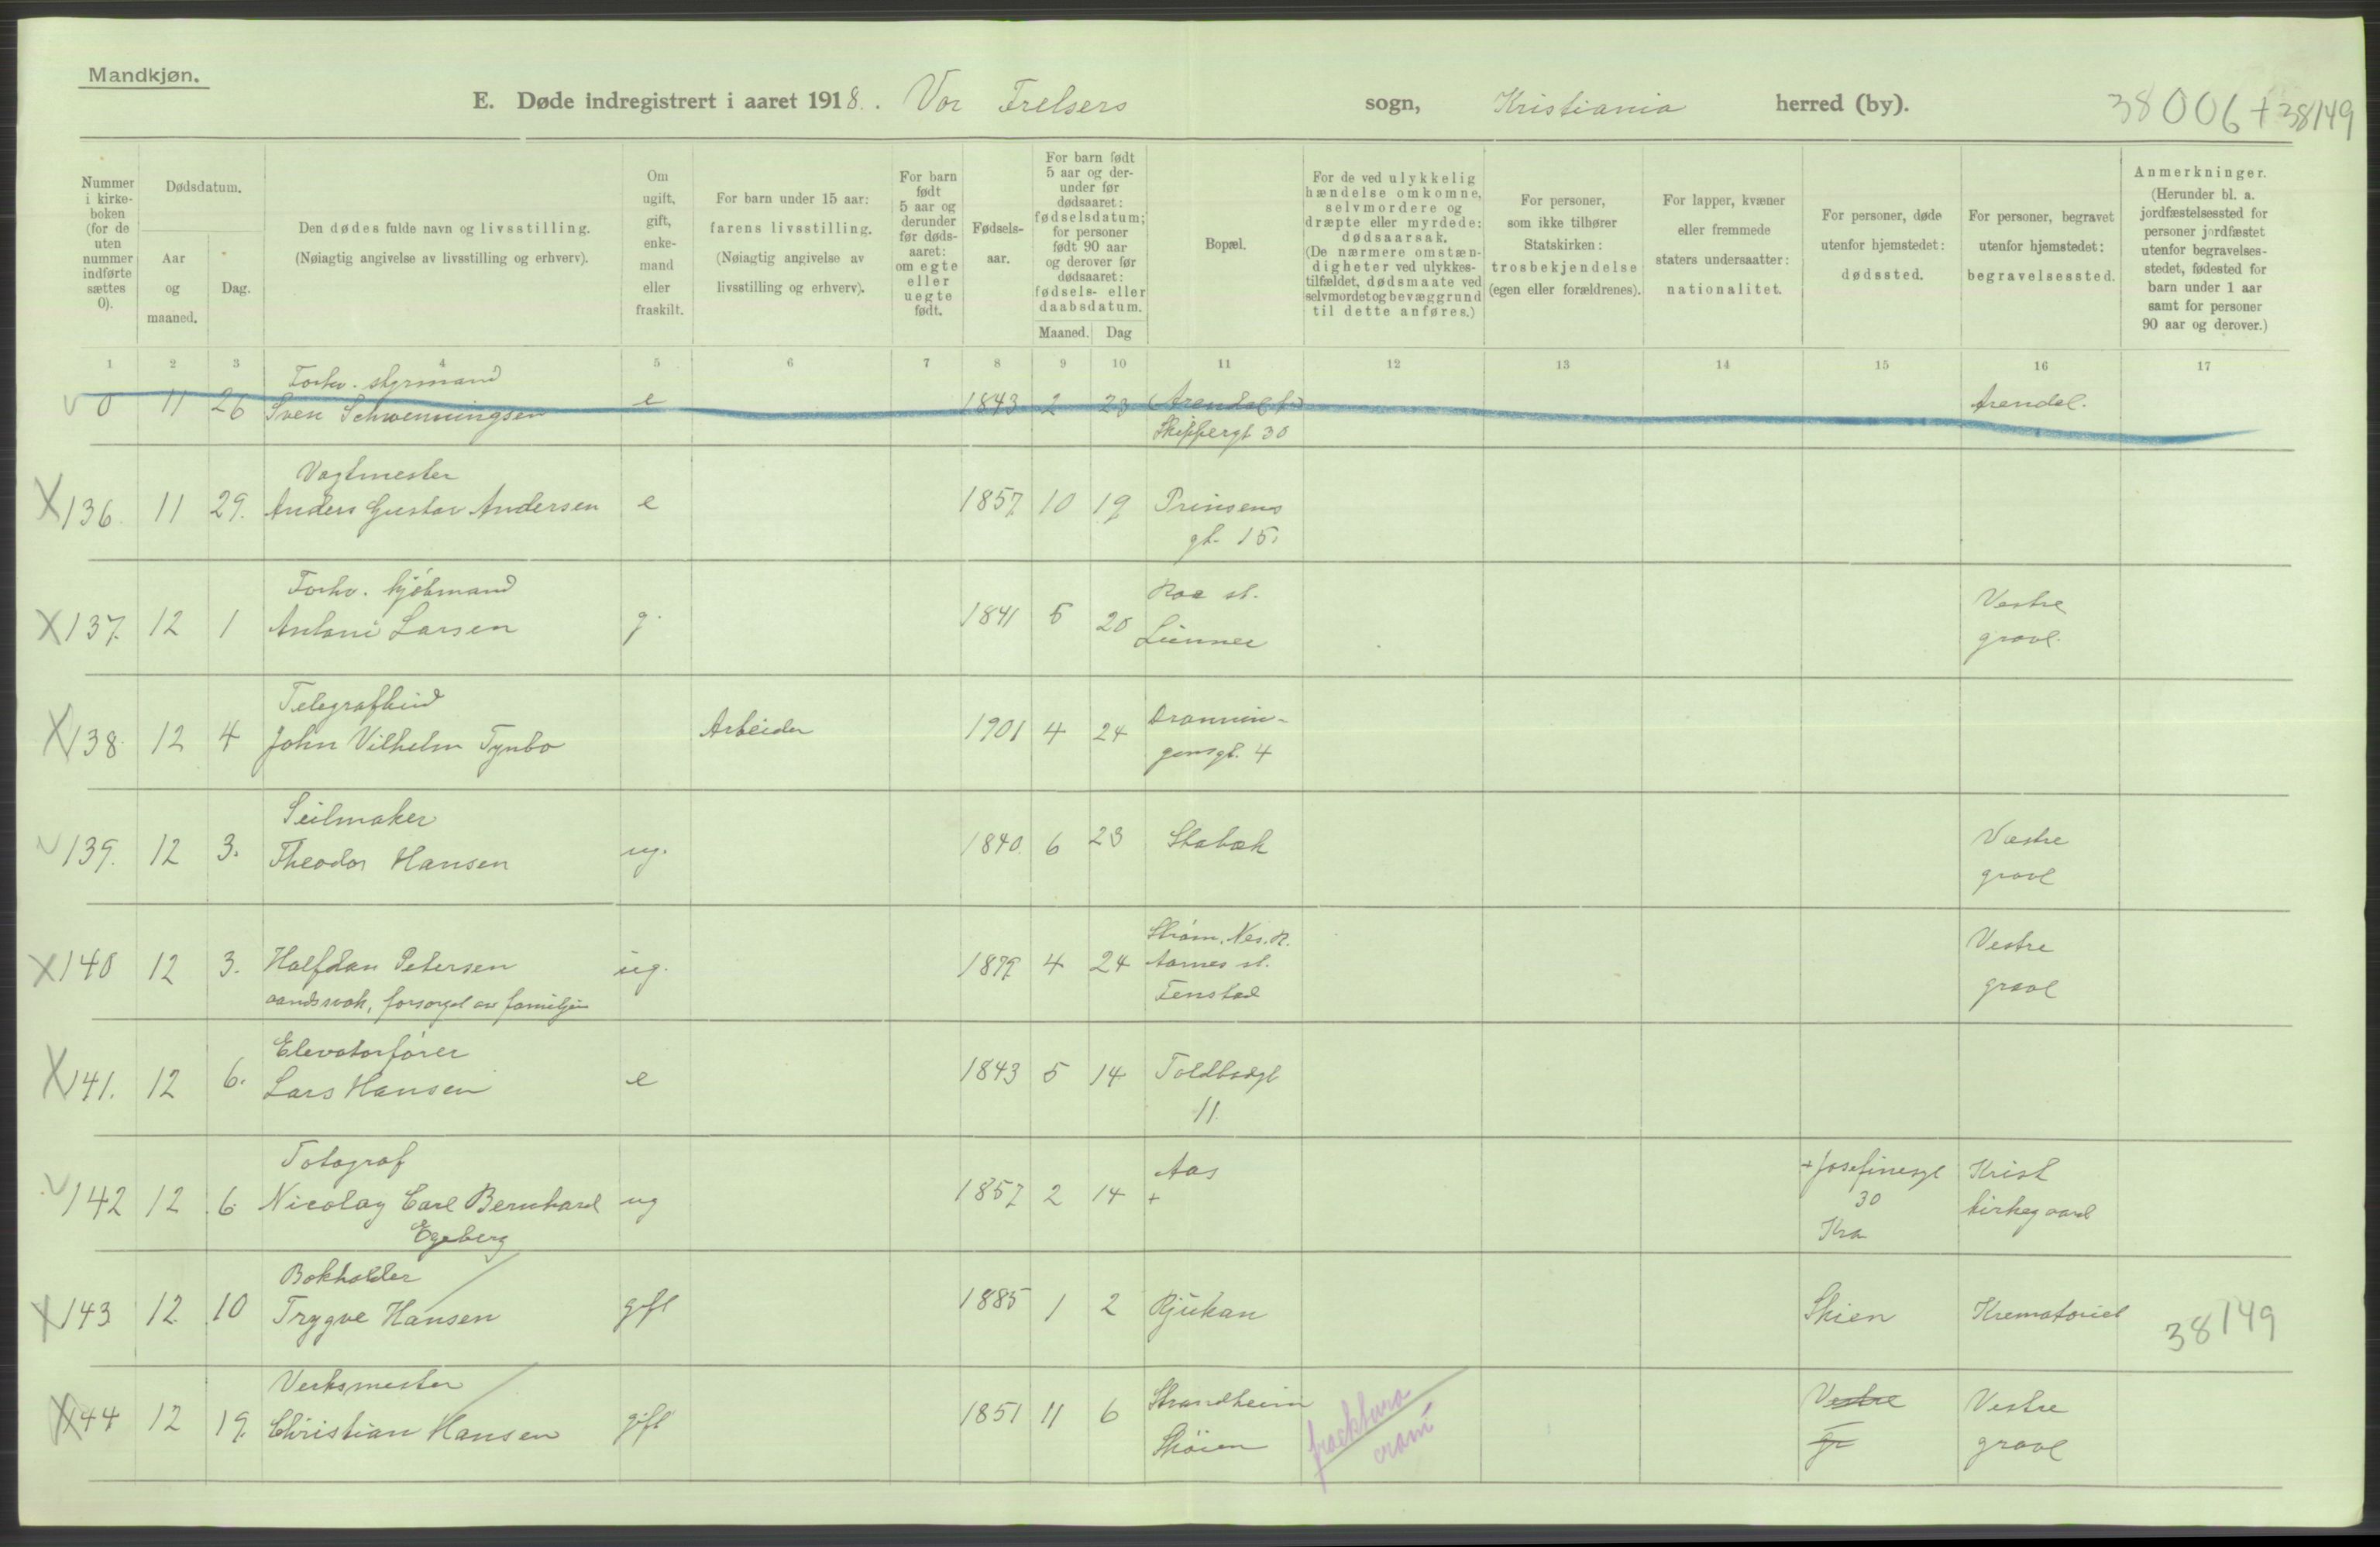 Mandkjøn.
E. Døde indregistrert i aaret 1918. Vor Frelsers sogn, Kristiania herred (by). 38006 + 38149
Nummer i kirkeboken (for de uten nummer indførte sættes 0).
Dødsdatum.
Aar og maaned.
Dag.
Den dødes fulde navn og livsstilling.
(Nøiagtig angivelse av livsstilling og erhverv).
Om ugift, gift, enkemand eller fraskilt.
For barn under 15 aar: farens livsstilling.
(Nøiagtig angivelse av livsstilling og erhverv).
For barn født 5 aar og derunder før dødsaaret: om egte eller uegte født.
Fødselsaar.
For barn født 5 aar og derunder før dødsaaret: fødselsdatum; for personer født 90 aar og derover før dødsaaret: fødsels- eller daabsdatum.
Maaned. Dag
Bopæl.
For de ved ulykkelig hændelse omkomne, selvmordere og dræpte eller myrdede: dødsaarsak.
(De nærmere omstændigheter ved ulykkestilfældet, dødsmaate ved selvmordet og bevæggrund til dette anføres.)
For personer, som ikke tilhører Statskirken: trosbekjendelse (egen eller forældrenes).
For lapper, kvæner eller fremmede staters undersaatter: nationalitet.
For personer, døde utenfor hjemstedet: dødssted.
For personer, begravet utenfor hjemstedet: begravelsessted.
Anmerkninger.
(Herunder bl. a. jordfæstelsessted for personer jordfæstet utenfor begravelsesstedet, fødested for barn under 1 aar samt for personer 90 aar og derover.)
1 2 3 4 5 6 7 8 9 10 11 12 13 14 15 16 17
Forhv. styrmand
0 11 26 Sven Schwenningsen e 1843 2 23 Arendal Arendal.
Skippergt 30
Vagtmester
136. 11 29. Anders Gustav Andersen e 1857 10 19 Prinsens
gt. 15
Forhv. kjøbmand
137. 12 1 Antoni Larsen g. 1841 5 20 Roa st. Vestre
Lunner gravl.
Telegrafbud
138. 12 4 John Vilhelm Tynbo Arbeider 1901 4 24 Dronnin-
gensgt. 4
Seilmaker
139. 12 3. Theodor Hansen ug. 1840 6 23 Stabæk Vestre
gravl
Strøm, Nes. R.
140 12 3. Halfdan Petersen ug. 1879 4 24 Aarnes st. Vestre
aandssvak, forsørget av familjen Tenstad gravl
Elevatorfører
141. 12 6. Lars Hansen e 1843 5 14 Toldbodgt
11.
Fotograf
142 12 6. Nicolay Carl Bernhard ug 1857 2 14 Aas + Josefinesgt Krist
Egeberg + 30 kirkegaard
Kra
Bokholder
143 12. 10 Trygve Hansen gift 1885 1 2 Rjukan Skien Krematoriet 38149
Verksmester
144 12 19. Christian Hansen gift 1851 11 6 Strandheim fraktura Vestre Vestre
Skøien crani gr gravl